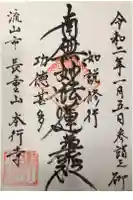 令和二年一月五日参詣之御
如説修行
南無妙法蓮華経
功徳甚多
流山市 長重山 本行寺